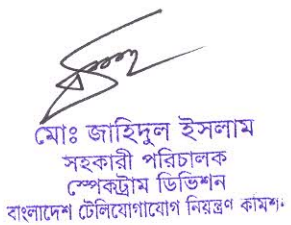 মোঃ জাহিদুল ইসলাম
সহকারী পরিচালক
স্পেকট্রাম ডিভিশন
বাংলাদেশ টেলিযোগাযোগ নিয়ন্ত্রণ কমিশন